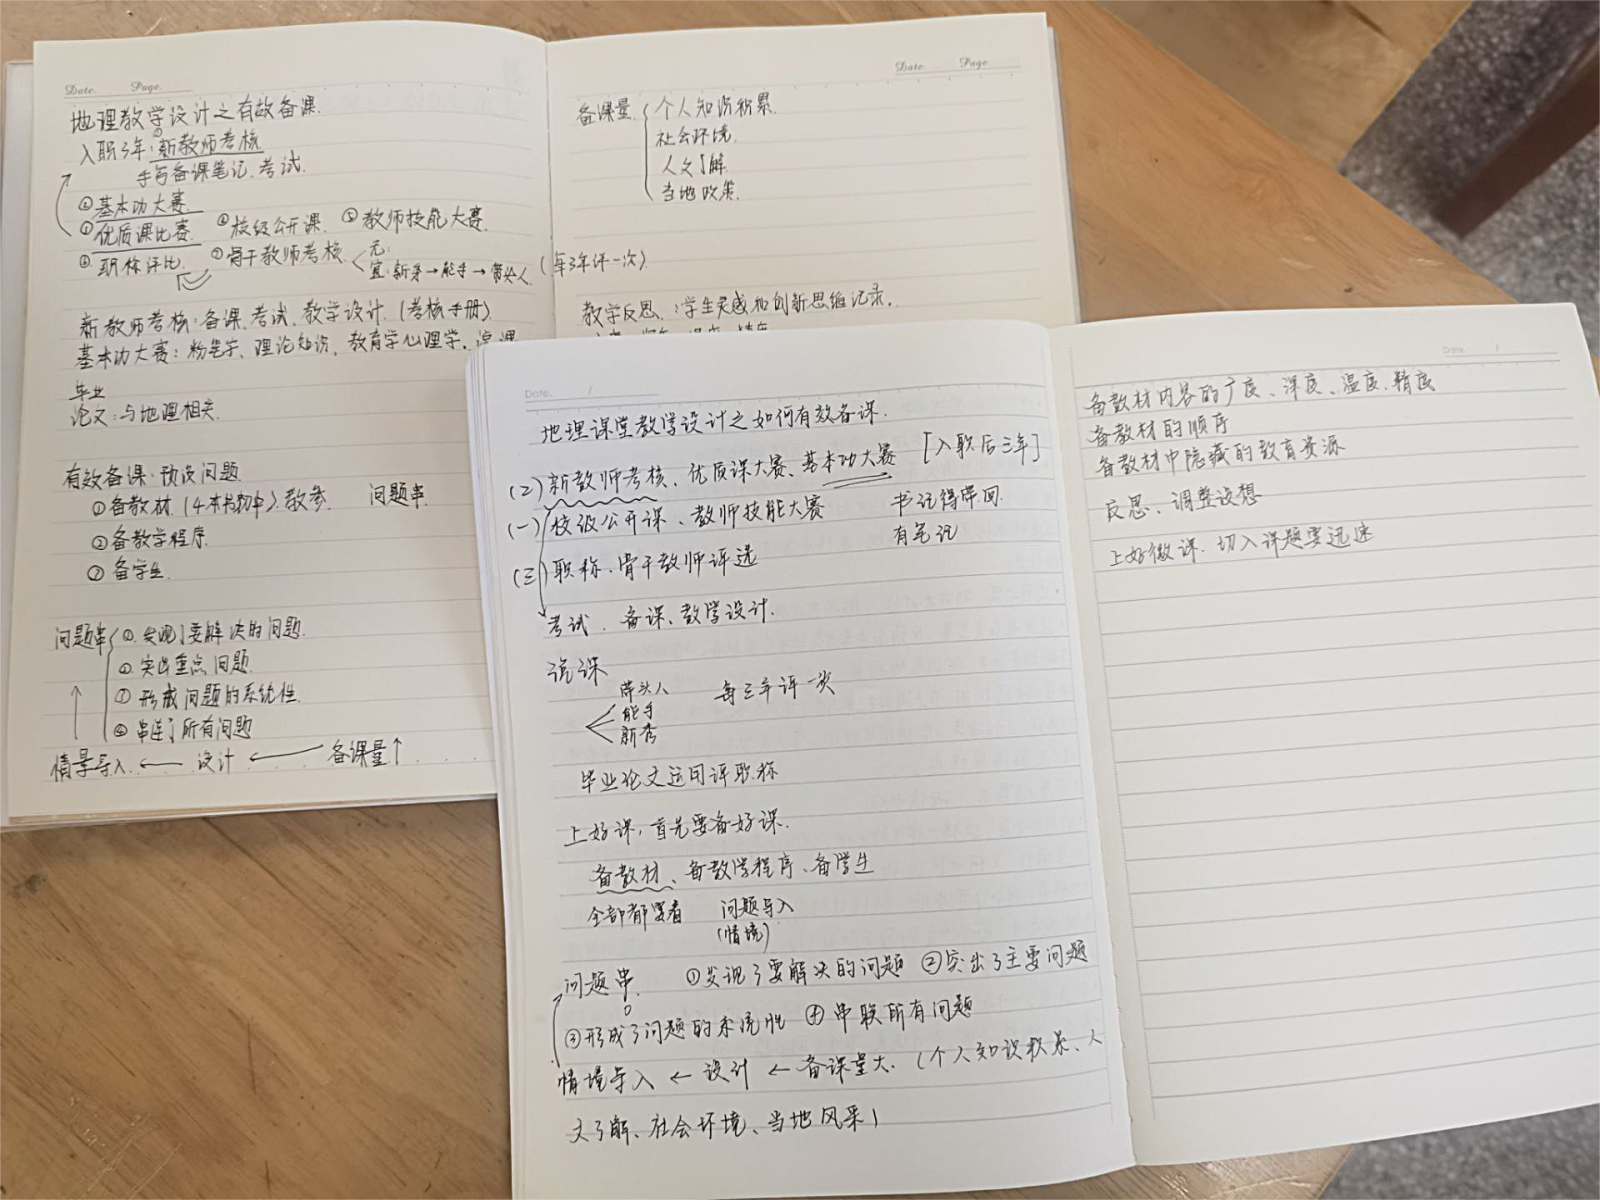 Date. Page.
地理教学设计之有效备课.
入职3年:新教师考核
手写备课笔记.考试.
②基本功大赛.
①优质课比赛. ④校级公开课. ⑤教师技能大赛.
⑥职称评比. ⑦骨干教师考核.
宜:新秀→能手→带头人
新教师考核:备课.考试.教学设计.(考核手册).
基本功大赛:粉笔字、理论知识、教育学心理学,说课
毕业
论文:与地理相关.
有效备课:预设问题.
①备教材.(4本书初中).教参. 问题串.
②备教学程序.
③备学生.
问题串 ①.发现了要解决的问题.
②突出重点问题.
③形成问题的系统性.
④串连了所有问题
情景导入.←设计←备课量↑
Date. Page.
备课量 个人知识积累.
社会环境.
人文了解.
当地政策.
(每3年评一次).
教学反思.:学生灵感和创新思维记录.
Date. /
地理课堂教学设计之如何有效备课.
(二)新教师考核、优质课大赛、基本功大赛 [入职后三年]
(一)校级公开课、教师技能大赛 书记得带回.
有笔记
(三)职称、骨干教师评选
考试. 备课、教学设计.
说课
带头人 每三年评一次
能手
新秀
毕业论文运用评职称
上好课,首先要备好课.
备教材、备教学程序、备学生
全部都要看 问题导入
(情境)
问题串. ①发现了要解决的问题 ②突出了主要问题
③形成了问题的系统性 ④串联所有问题
情境导入←设计←备课量大.(个人知识积累、人
文了解、社会环境、当地风采)
Date. /
备教材内容的广度、深度、温度.精度
备教材的顺序
备教材中隐藏的教育资源
反思、调整设想
上好微课.切入课题要迅速